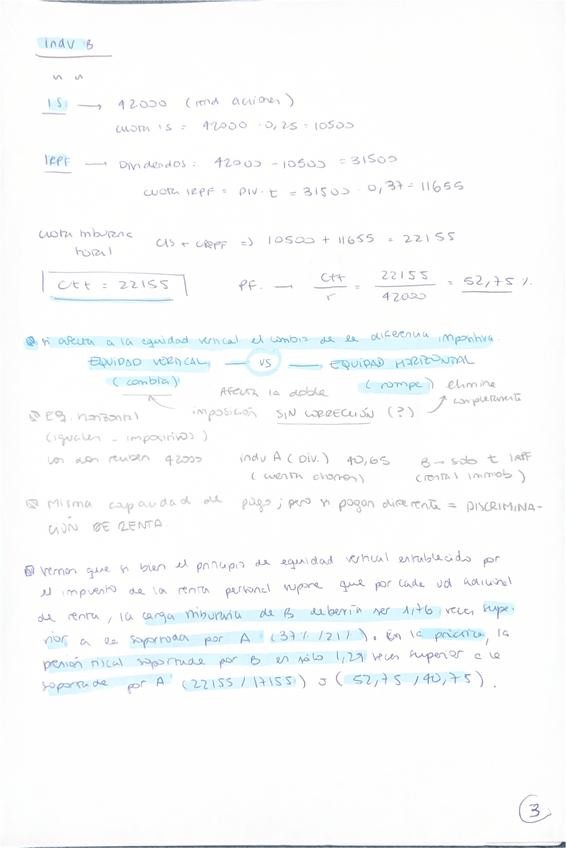 indv B
" "
IS → 42000 (rend acciones)
cuota IS = 42000 · 0,25 = 10500
IRPF — Dividendos: 42000 - 10500 = 31500
cuota IRPF = DIV · t = 31500 · 0,37 = 11655
cuota tributaria total CIS + CIRPF => 10500 + 11655 = 22155
Ctt = 22155 PF. → Ctt / r = 22155 / 42000 = 52,75 %
si afecta a la equidad vertical el cambio de la diferencia impositiva.
EQUIDAD VERTICAL — VS — EQUIDAD HORIZONTAL
(cambia) Afecta la doble (rompe) elimine
imposición SIN CORRECCIÓN (?) completamente
EQ. horizontal
(iguales - impositivos)
Los dos reciben 42000 indv A (Div.) 40,65 B → solo t IRPF
(rental inmob)
Misma capacidad de pago; pero si pagan diferente = DISCRIMINA-
CIÓN DE RENTA.
Vemos que si bien el principio de equidad vertical establecido por
el impuesto de la renta personal supone que por cada ud adicional
de renta, la carga tributaria de B debería ser 1,76 veces supe-
rior a la soportada por A (37% / 21%). En la práctica, la
presión fiscal soportada por B es sólo 1,29 veces superior a la
soportada por A (22155 / 17155) o (52,75 / 40,75).
3